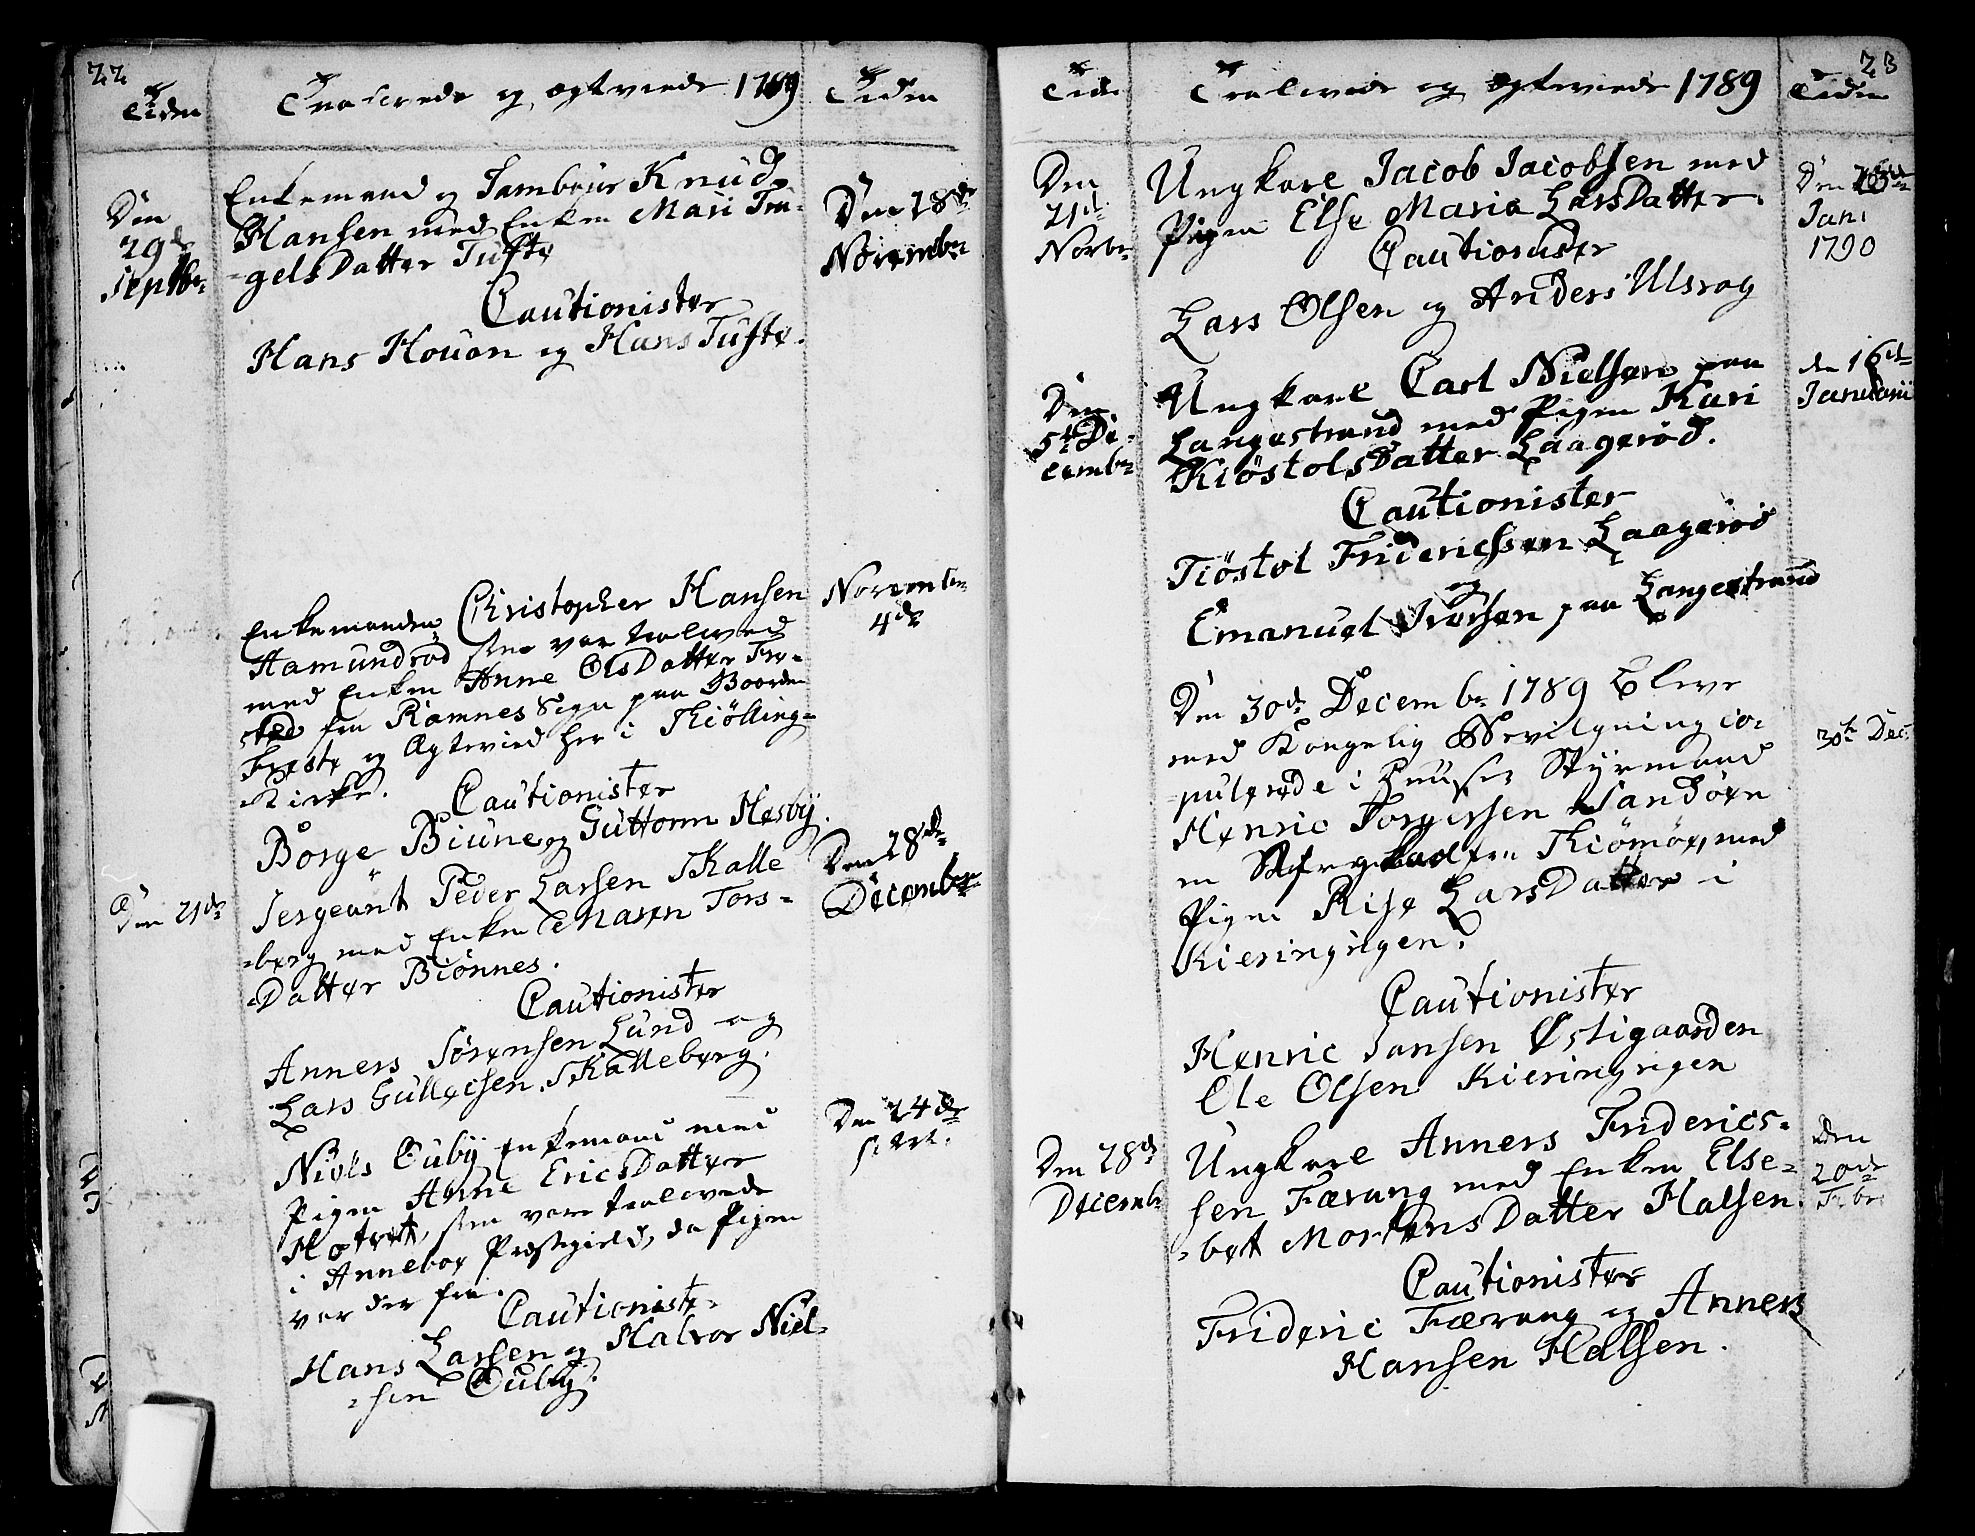 22
Tiden
Trolovede og ægtviede 1789
Tiden
Den
29de
Septbr
Enkemand og Tambour Knud
Hansen med Enken Mari En-
-gelsDatter Tufte
Cautionister
Hans Houan og Hans Tufte.
Den 28de
Novembr
Enkemanden Christopher Hansen
Hamundrød som var troloved
med Enken Anne OlsDatter Fre-
sted fra Ramnes Sogn paa Gaarden
Freste og Ægteviedt her i Kiølling-
Kirke.
Cautionister
Børge Biune og Guttorm Hesby.
Novembr
4de
Den 21de
Sergeant Peder Larsen Skalle
-berg med Enken Maren Tors-
-Datter Biønnes.
Cautionister
Anners Sørensen Lund og
Lars Gullecsen Skalleberg.
Den 28de
Decembr
Niels Ouby Enkemand med
Pigen Anne EricsDatter
som vare trolovede
i Anneboe Præstegield, da Pigen
var der fra.
Cautionister
Hans Larsen og Halvor Niel-
-sen Ouby.
Den 24de
23
Tiden
Trolovede og Ægteviede 1789
Tiden
Den
21de
Novbr
Ungkarl Jacob Jacobsen med
Pigen Else Maria LarsDatter.
Cautionister
Lars Olsen og Anders Ulsrog
Den
Jan:
1790
Den
5te De-
cembr
Ungkarl Carl Nielsen paa
Langestrand med Pigen Kari
KiøstolsDatter Laagerød.
Cautionister
Tiøstol Fridericssen Laagerød
og
Emanuel Iversen paa Langestrand
den 16de
Januarii
Den 30de Decembr 1789 bleve
med Kongelig Bevilgning co-
pulerede i Huuset Styrmand
Henric Torgersen Sandøen
fra Kiømøe, med
Pigen Rise LarsDatter i
Kieringvigen.
Cautionister
Henric Jansen Østigaarden
Ole Olsen Kieringvigen
30te Dec:
Den 28de
Decembr
Ungkarl Anners Frideric-
sen Færung med Enken Else-
-bet MortensDatter Halsen.
Cautionister
Frideric Færung og Anners
Hansen Halsen.
den
20de
Febr: